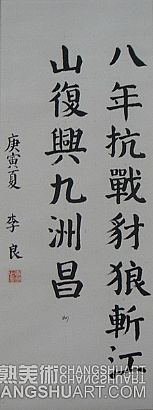 八年抗戰豺狼斬江
山復興九洲昌
庚寅夏 李良
熟美術
ANGSHUART.COM